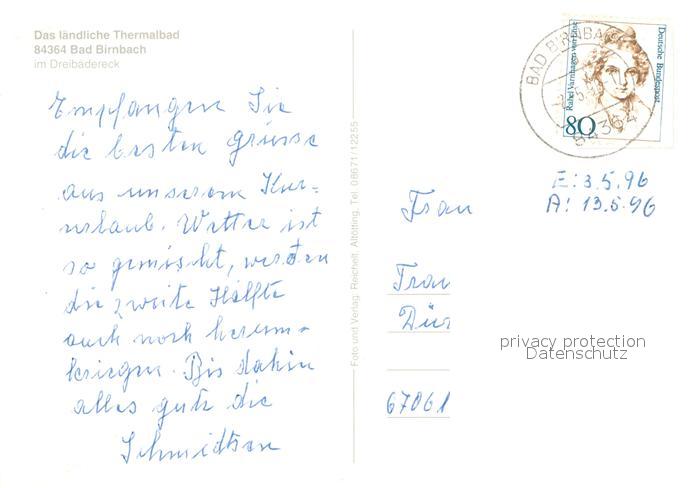 Das ländliche Thermalbad
84364 Bad Birnbach
im Dreibädereck
Empfangen Sie
die besten Grüsse
aus unserem Kur=
urlaub. Wetter ist
so gemischt, werden
die zweite Hälfte
auch noch herum-
kriegen. Bis dahin
alles gute die
Foto und Verlag: Reichelt, Altötting, Tel. 08671/12255
BAD BIRNBA
84364
Rahel Varnhagen von Ense
Deutsche Bundespost
80
E: 3.5.96
A: 13.5.96
Frau
Frau
67061
privacy protection
Datenschutz